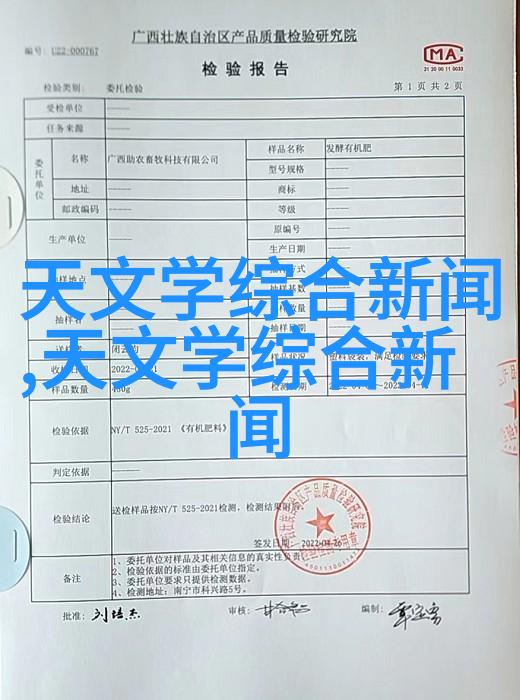 广西壮族自治区产品质量检验研究院
编号: U22-000767
检验报告
MA
21 20 00 11 0033
检验类别: 委托检验
第 1 页 共 2 页
受检单位 ——
任务来源 ——
委托单位
名称 广西助农畜牧科技有限公司
样品名称 发酵有机肥
型号规格 ——
地址 ——
商标 ——
邮政编码 ——
等级 ——
生产单位 ——
原编号 ——
生产日期 ——
天文学综合新闻
,天文学综合新
闻
抽样地点
抽样者
样品数量
检验依据 NY/T 525-2021 《有机肥料》
判定依据 ——
检验结论 送检样品按NY/T 525-2021检测, 检测结果
签发日期: 2022-04-26
备注
1、委托单位对样品及其相关信息的真实性负责。
2、检验依据的标准由委托单位指定。
3、委托单位要求只提供检测数据。
4、检测地址: 南宁市科兴路5号。
批准:
审核:
编制: